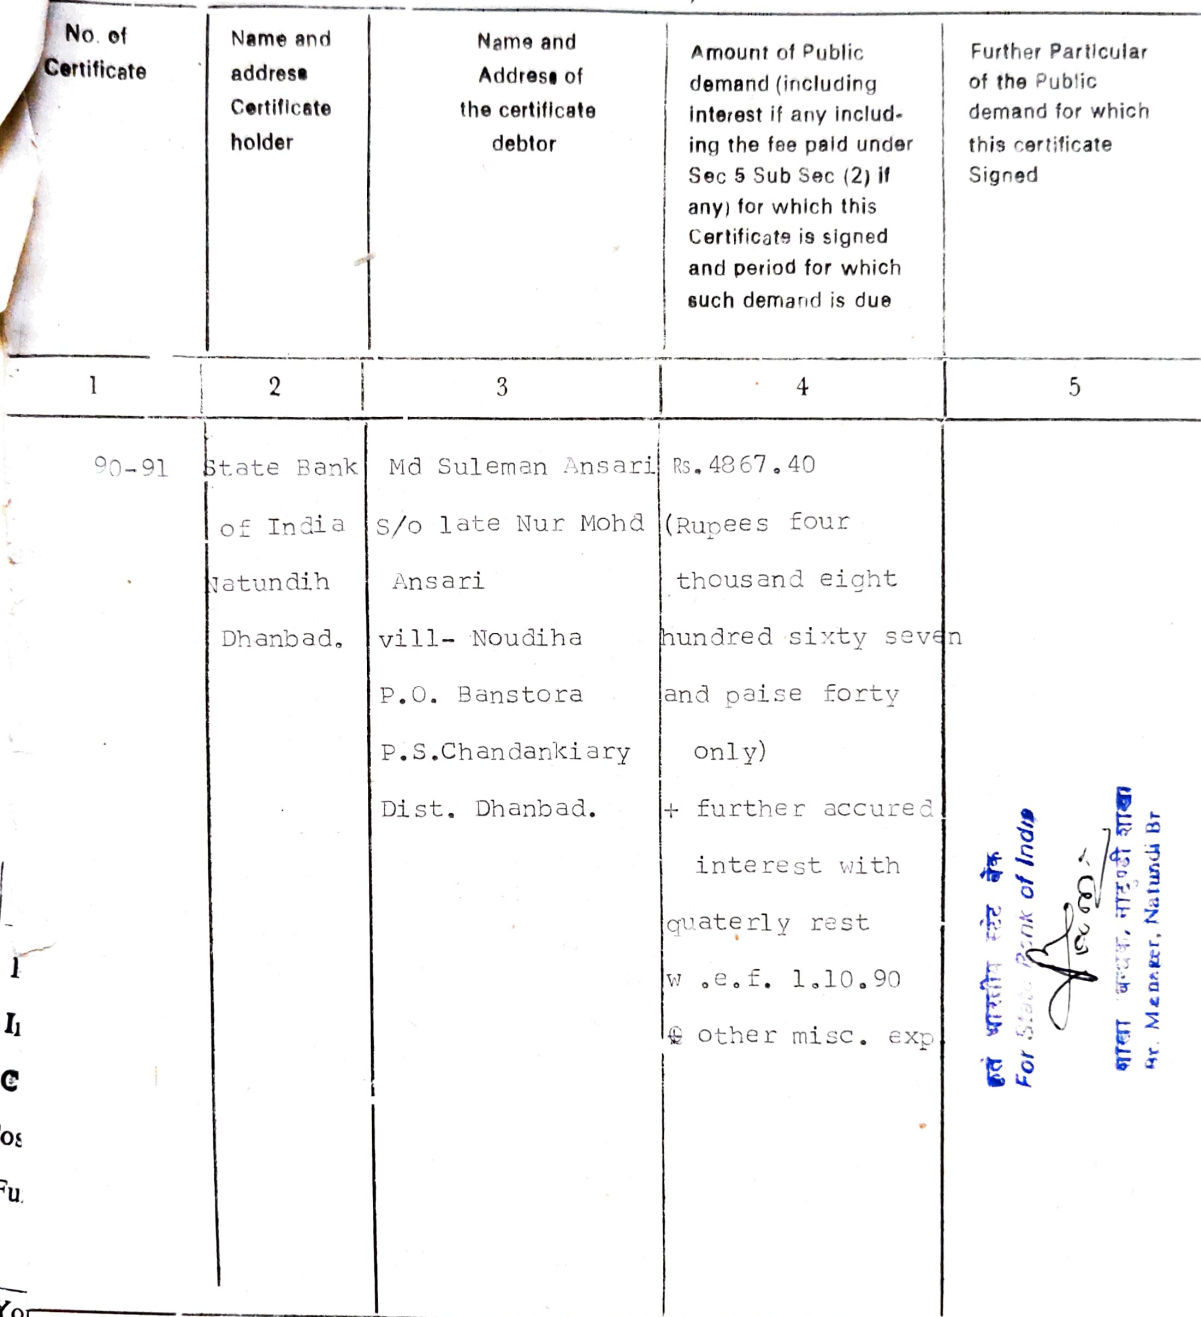 No. of
Certificate
Name and
address
Certificate
holder
Name and
Address of
the certificate
debtor
Amount of Public
demand (including
interest if any includ-
ing the fee paid under
Sec 5 Sub Sec (2) if
any) for which this
Certificate is signed
and period for which
such demand is due
Further Particular
of the Public
demand for which
this certificate
Signed
1
2
3
4
5
90-91
State Bank
of India
Natundih
Dhanbad.
Md Suleman Ansari
S/o late Nur Mohd
Ansari
vill- Noudiha
P.O. Banstora
P.S.Chandankiary
Dist. Dhanbad.
Rs.4867.40
(Rupees four
thousand eight
hundred sixty seven
and paise forty
only)
+ further accured
interest with
quaterly rest
w .e.f. 1.10.90
& other misc. exp
कृते भारतीय स्टेट बैंक
For State Bank of India
शाखा प्रबन्धक, नाटुण्डी शाखा
Br. Manager, Natundi Br